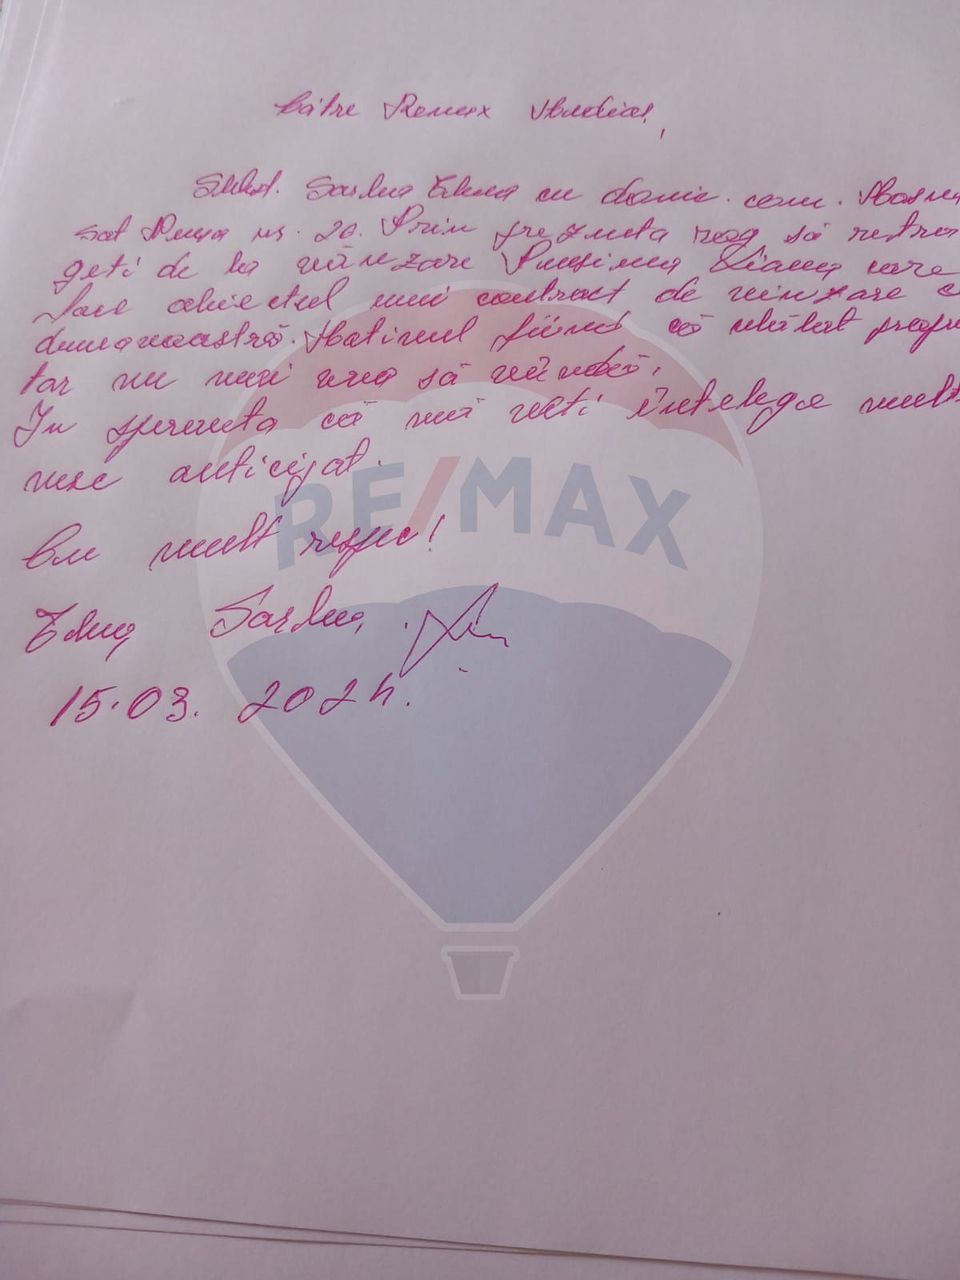 Către Remax
Subst. Sarlea Elena cu domic. com.
sat nr. 20. Prin prezenta rog să retra
geti de la vânzare Pensiunea Diana care
face obiectul unui contract de vinzare c
dumaneastră. Motivul fiind că celălalt propie
tar nu mai vrea să vândă.
In speranta că mă veti întelege mult
mesc anticipat.
Cu mult respec!
Elena Sarlea
15.03.2024.
RE/MAX